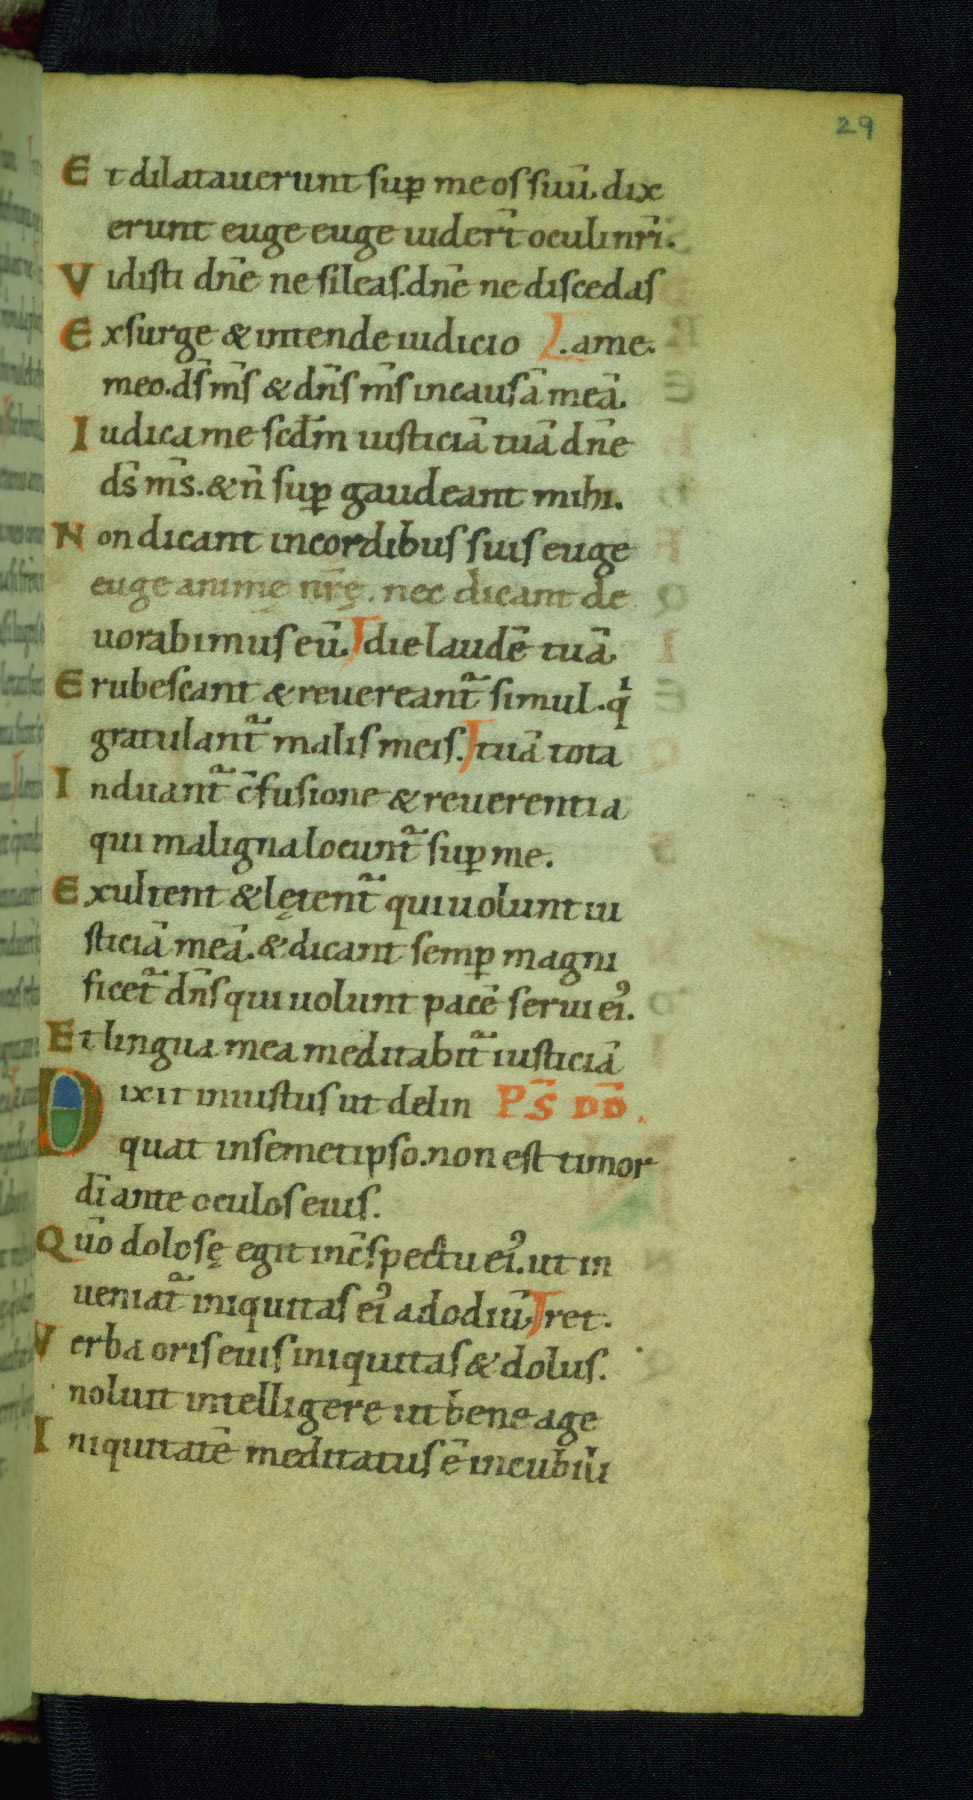 29
Et dilatauerunt sup̄ me os suū. dix
erunt euge euge uider̄t oculi nr̄i.
Vidisti dn̄e ne sileas. dn̄e ne discedas
Exsurge & intende iudicio ⁅. a me.
meo. ds̄ ms̄ & dn̄s ms̄ in causā meā.
Iudica me scd̄m iusticiā tuā dn̄e
ds̄ ms̄. & n̄ sup̄ gaudeant mihi.
Non dicant in cordibus suis euge
euge animę nr̄ę. nec dicant de
uorabimus eū. ⁅ die laudē tuā.
Erubescant & reuereant᷑ simul. qⁱ
gratulant᷑ malis meis. ⁅ tuā tota
Induant᷑ c̄fusione & reuerentia
qui maligna locunt᷑ sup̄ me.
Exultent & lętent᷑ qui uolunt iu
sticiā meā. & dicant semp̄ magni
ficet᷑ dn̄s qui uolunt pacē serui ei᾽.
Et lingua mea meditabit᷑ iusticiā
Dixit iniustus ut delin PS̄ DD̄.
quat in semetipso. non est timor
dī ante oculos eius.
Qūo dolosę egit in c̄spectu ei᾽. ut in
ueniat᷑ iniquitas ei᾽ ad odiū. ⁅ ret.
Verba oris eius iniquitas & dolus.
noluit intelligere ut bene age
Iniquitatē meditatus ē in cubili